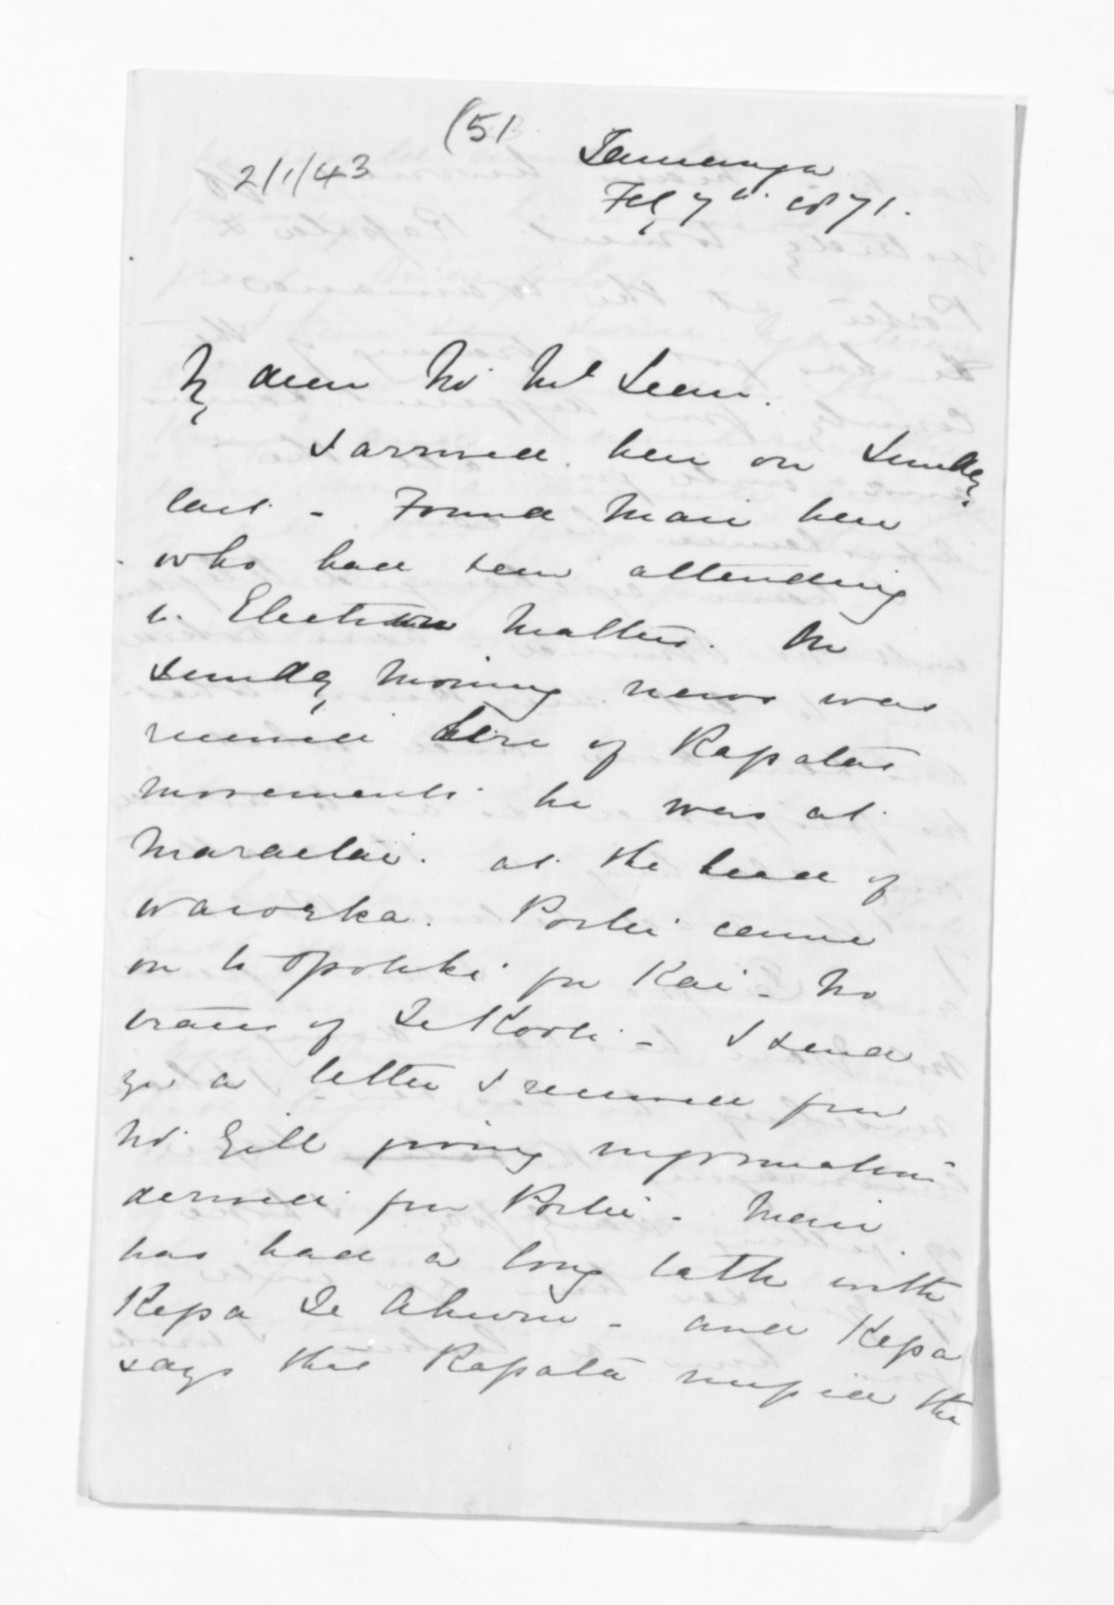 (51
2/1/43
Tauranga
Feby 7th 1871.
My dear Mr McLean.
I arrived here on Sunday
last - Found Mair here
who had been attending
to Election Matters. On
Sunday Morning news was
received here of Rapatas
movements he was at
Maraetai. at the head of
Waioeka. Porter came
on to Opotiki for Kai - No
traces of Te Kooti - I send
you a letter I received from
Mr. Gill giving information
derived from Porter - Mair
has had a long talk with
Kepa Te Ahuru - and Kepa
says that Rapata the